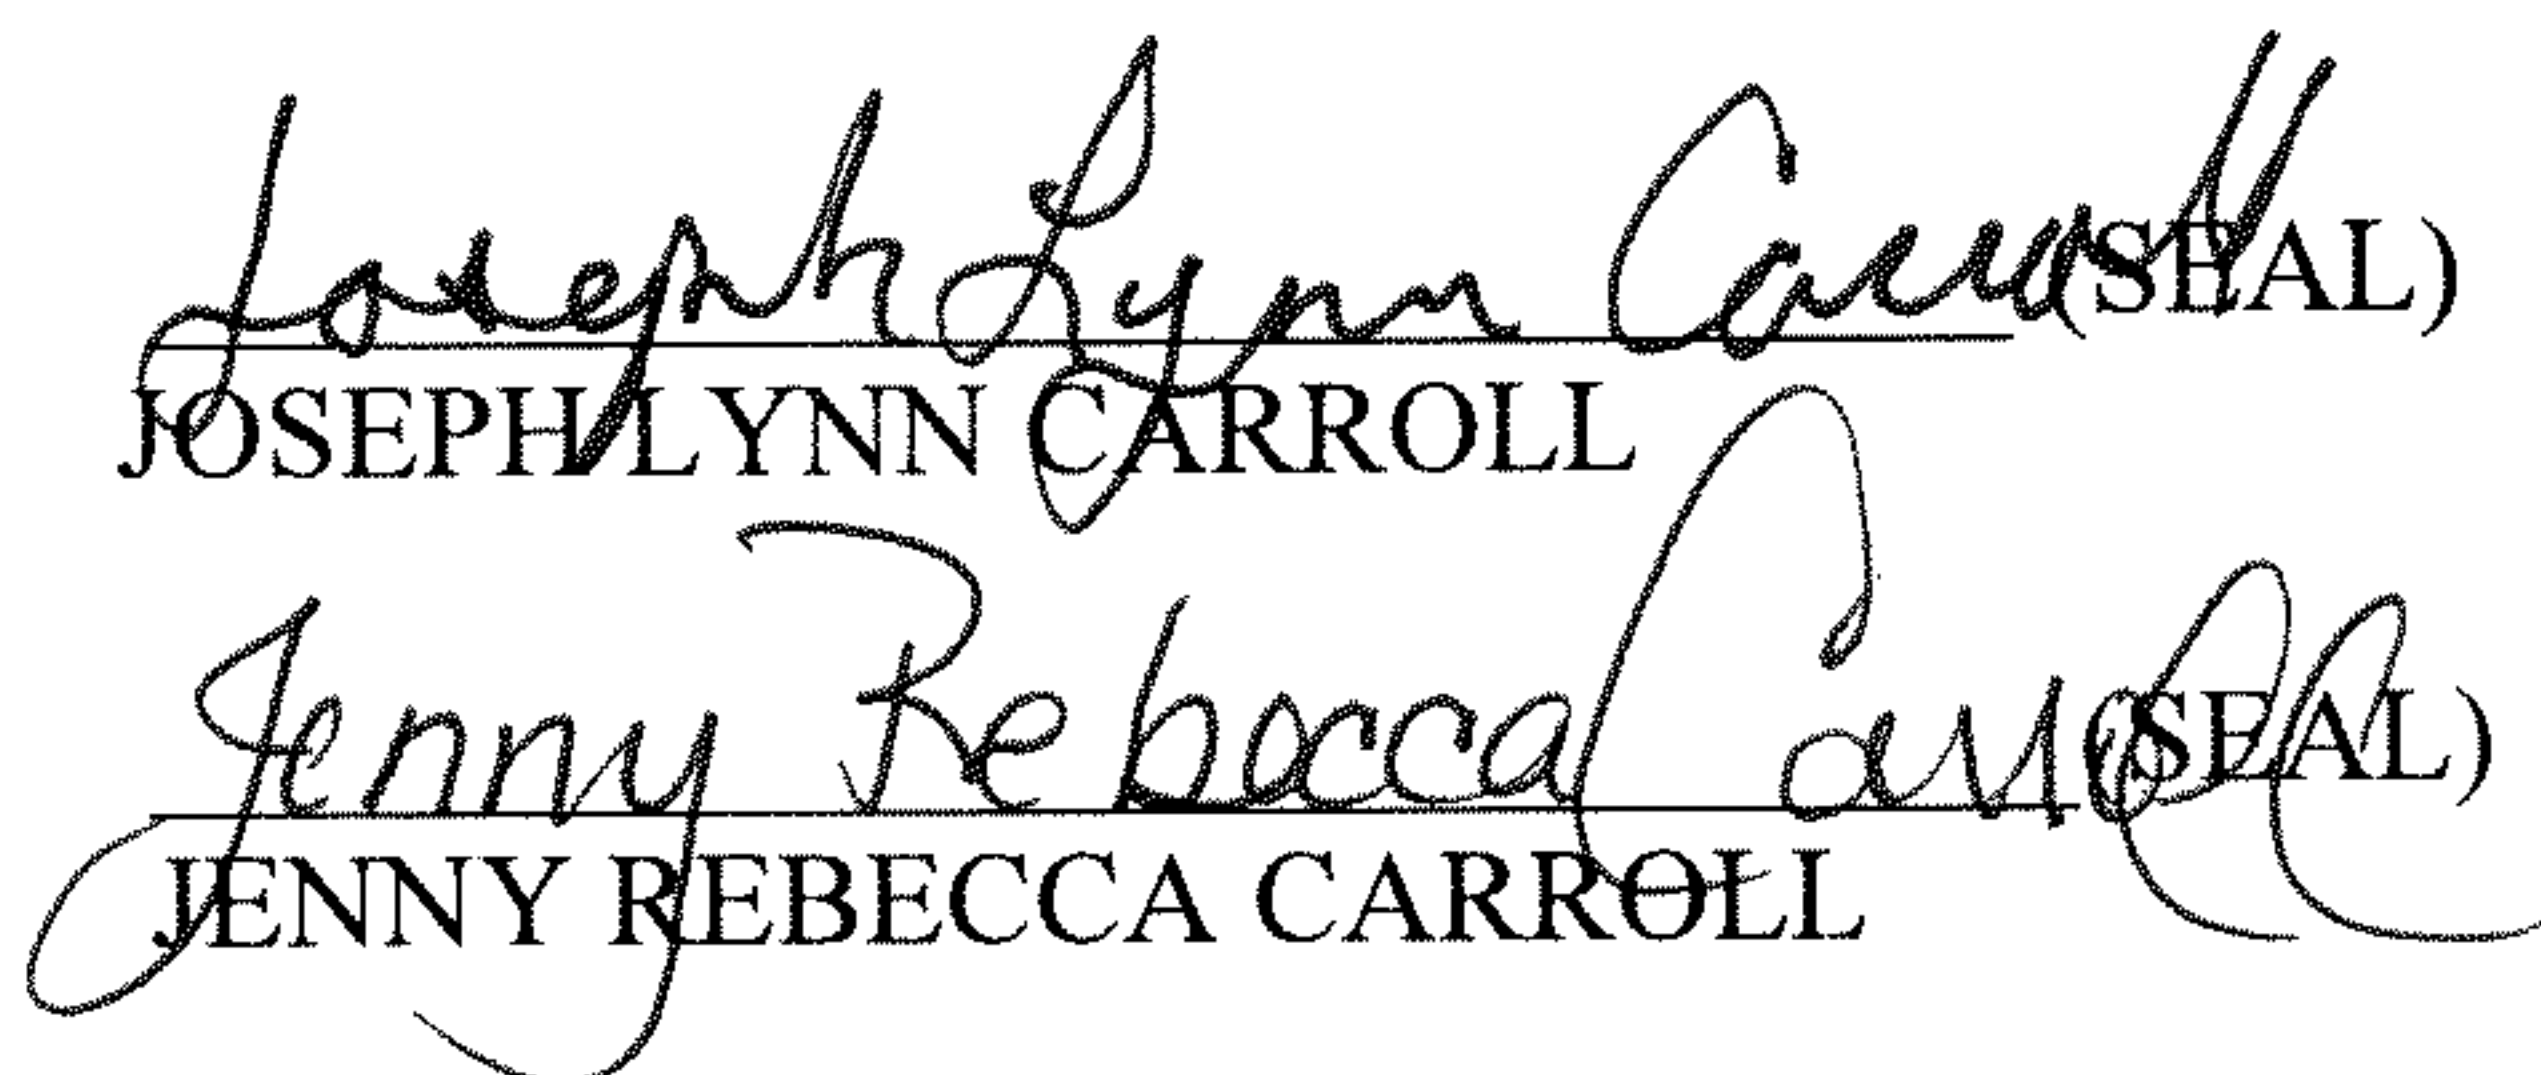 Joseph Lynn Carroll (SEAL)
JOSEPH LYNN CARROLL
Jenny Rebecca Carroll (SEAL)
JENNY REBECCA CARROLL